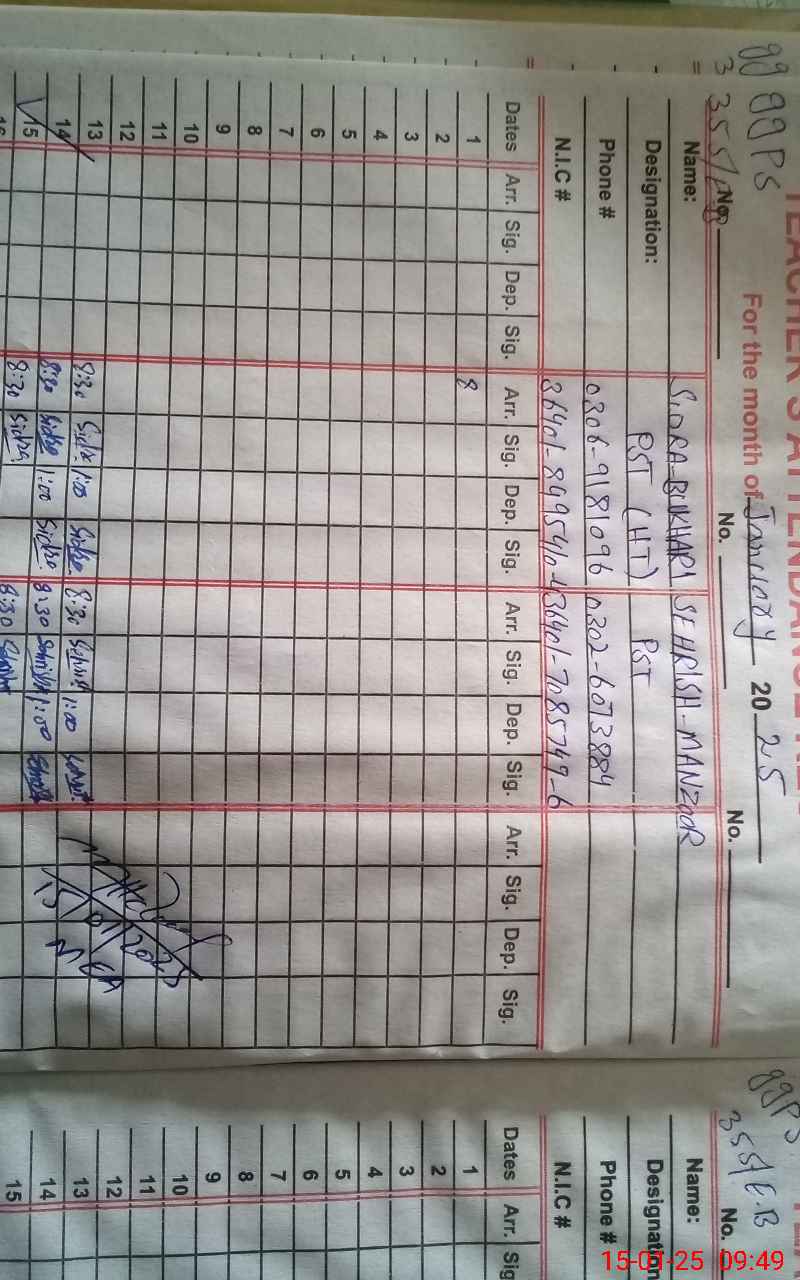 GGPS
TEACHER'S ATTENDANCE
For the month of January 2025
3 355/
No. No. No.
Name: SIDRA-BUKHARI SEHRISH-MANZOOR
Designation: PST (HT) PST
Phone # 0306-9181096 0302-6073884
N.I.C #
Dates Arr. Sig. Dep. Sig. Arr. Sig. Dep. Sig. Arr. Sig. Dep. Sig. Arr. Sig. Dep. Sig.
1 8
2
3
4
5
6
7
8
9
10
11
12
13 8:30 Sidra 1:00 Sidra 8:30 1:00
14 8:30 Sidra 1:00 Sidra 8:30 Sehrish 1:00
15 8:30 Sidra 8:30 Sehrish
16
15/01/2025
GGPS
355/E.B
No.
Name:
Designation
Phone #
N.I.C #
Dates Arr. Sig
1
2
3
4
5
6
7
8
9
10
11
12
13
14
15
15-01-25 09:49